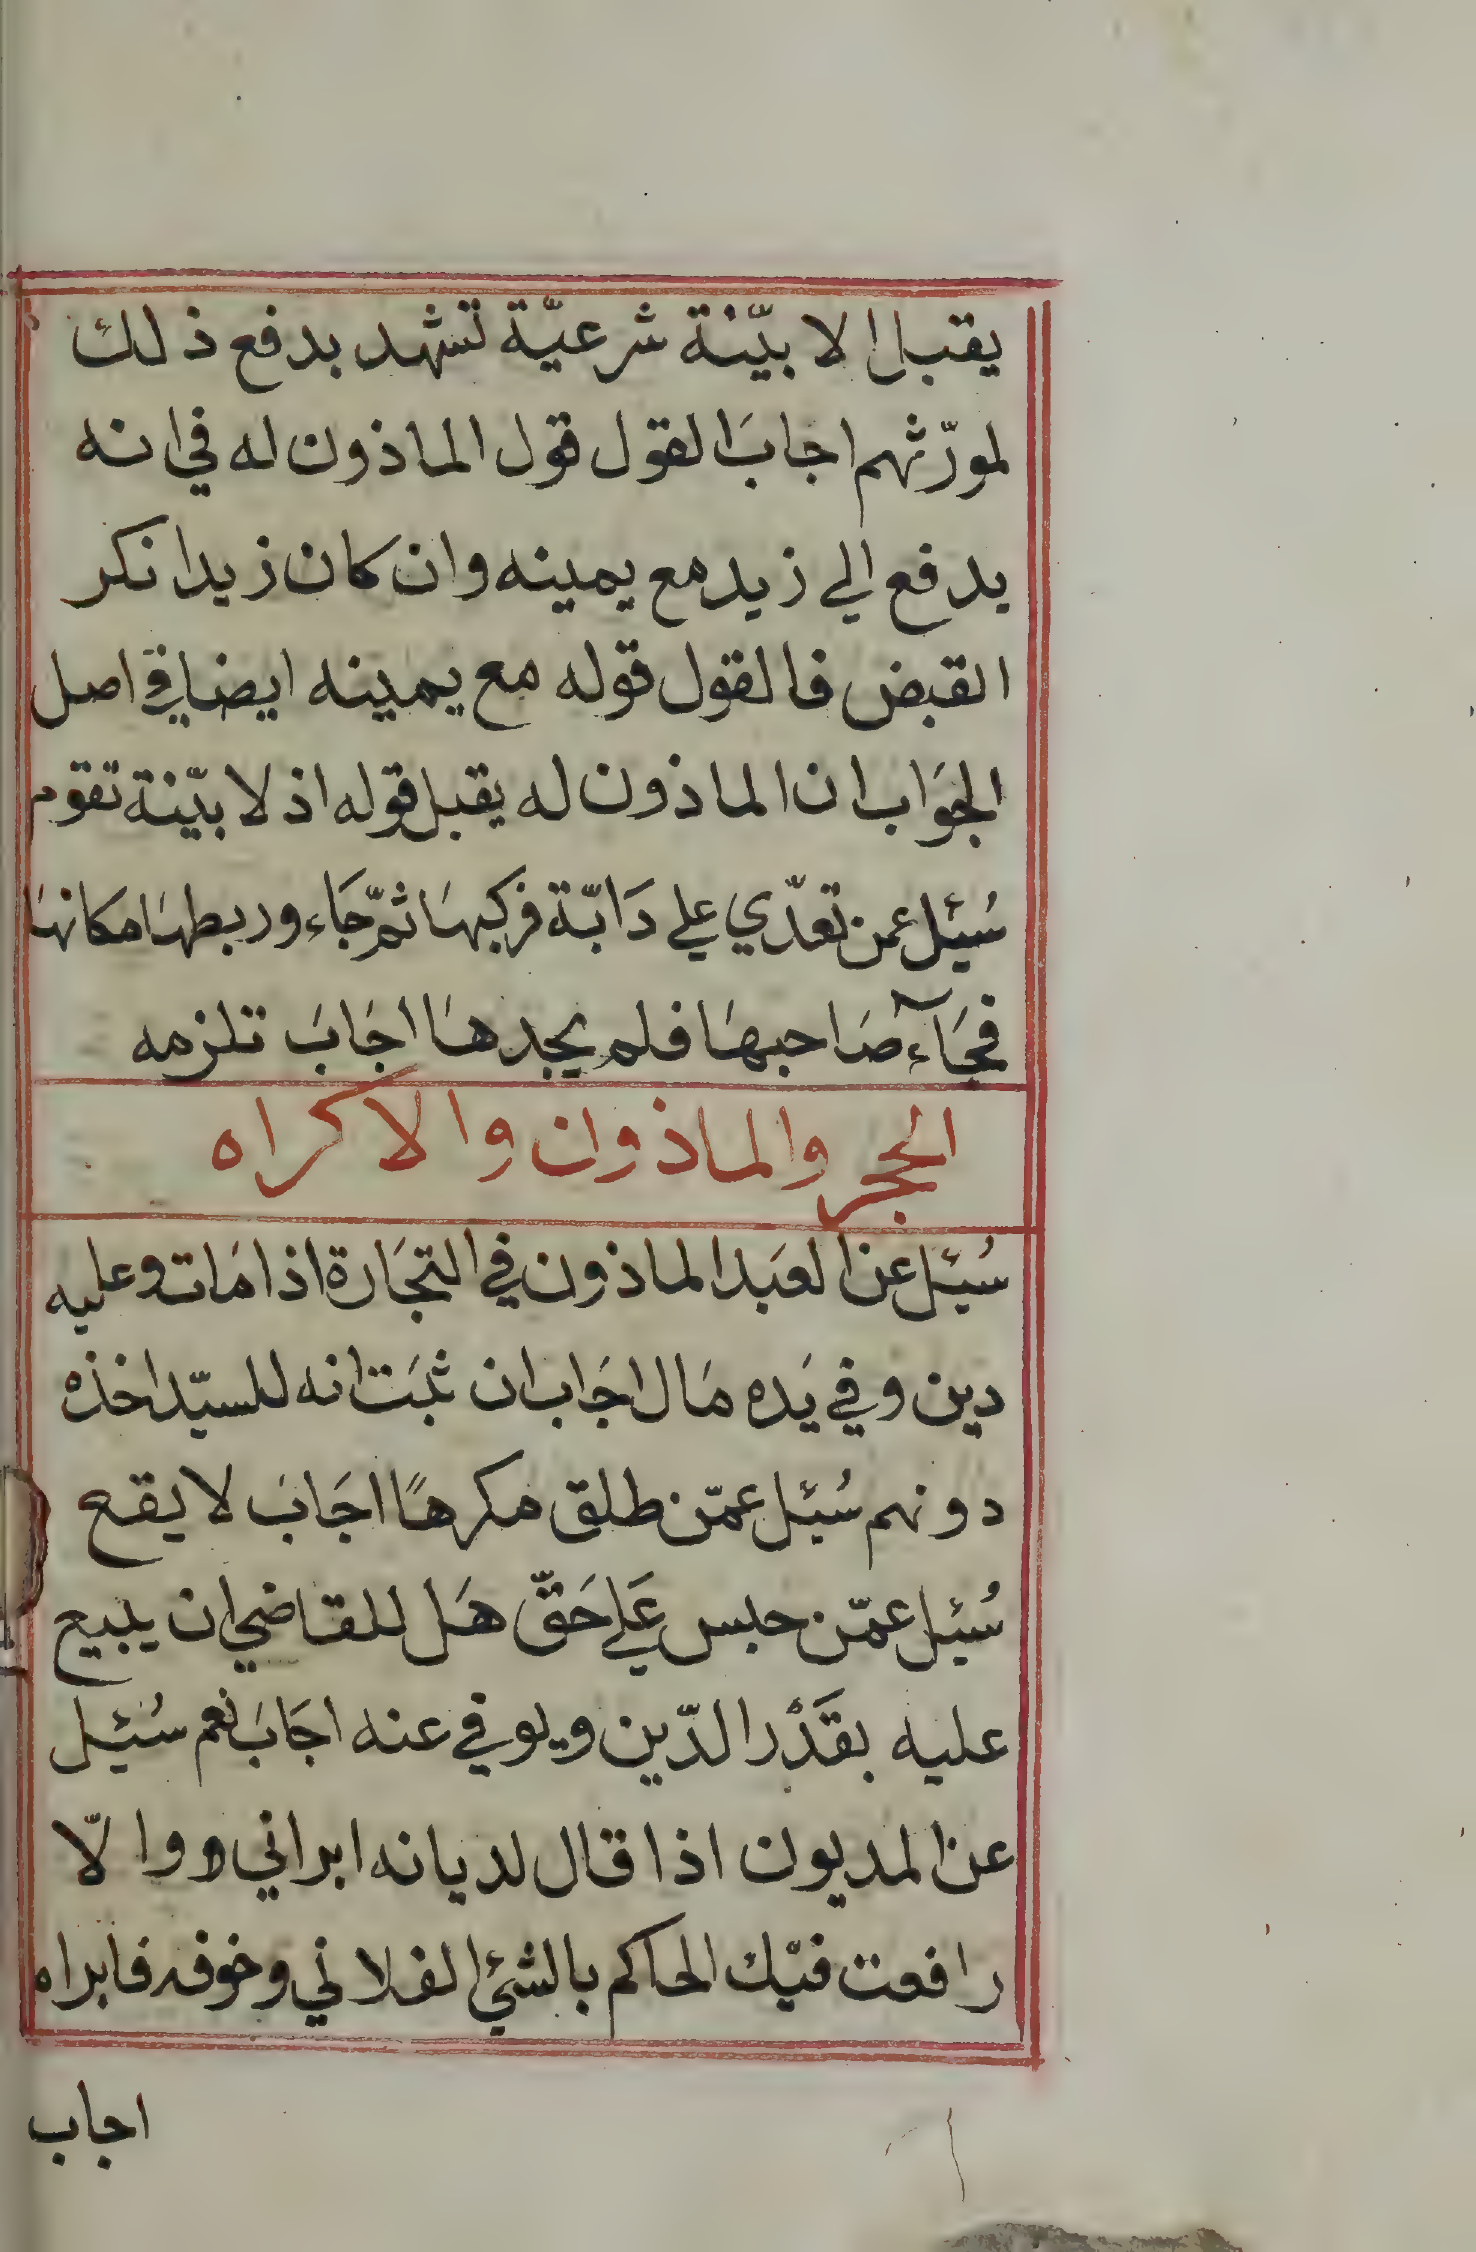 يقبل الا بيّنة شرعيّة تشهد بدفع ذلك
لمورّثهم اجابَ القول قول الماذون له في انه
يدفع الي زيد مع يمينه وان كان زيد انكر
القبض فالقول قوله مع يمينه ايضا في اصل
الجوَاب ان الماذون له يقبل قوله اذ لا بيّنة تقوم
سُئِل عمن تعدّي علي دَابّة فركبهَا ثمّ جَاء وربطهَا مكانهَا
فجَآء صَاحبهَا فلم يجدهَا اجَابَ تلزمه
الحجر والماذوان والاكراه
سُئِل عن العَبد الماذون في التجَارة اذا مَات وعليه
دين وفي يَده مَال اجَاب ان ثبَت انه للسيّد اخذه
دونهم سُئِل عمّن طلق مكرهًا اجَابَ لا يقع
سُئِل عمّن حبس عَلي حَقّ هَل للقاضي ان يبيع
عليه بقَدْر الدّين ويوفي عنه اجَابَ نعم سُئِل
عن المديون اذا قال لديانه ابراني ووالّا
رافعت فيّك الحاكم بالشئ الفلاني وخوفه فابراه
اجاب